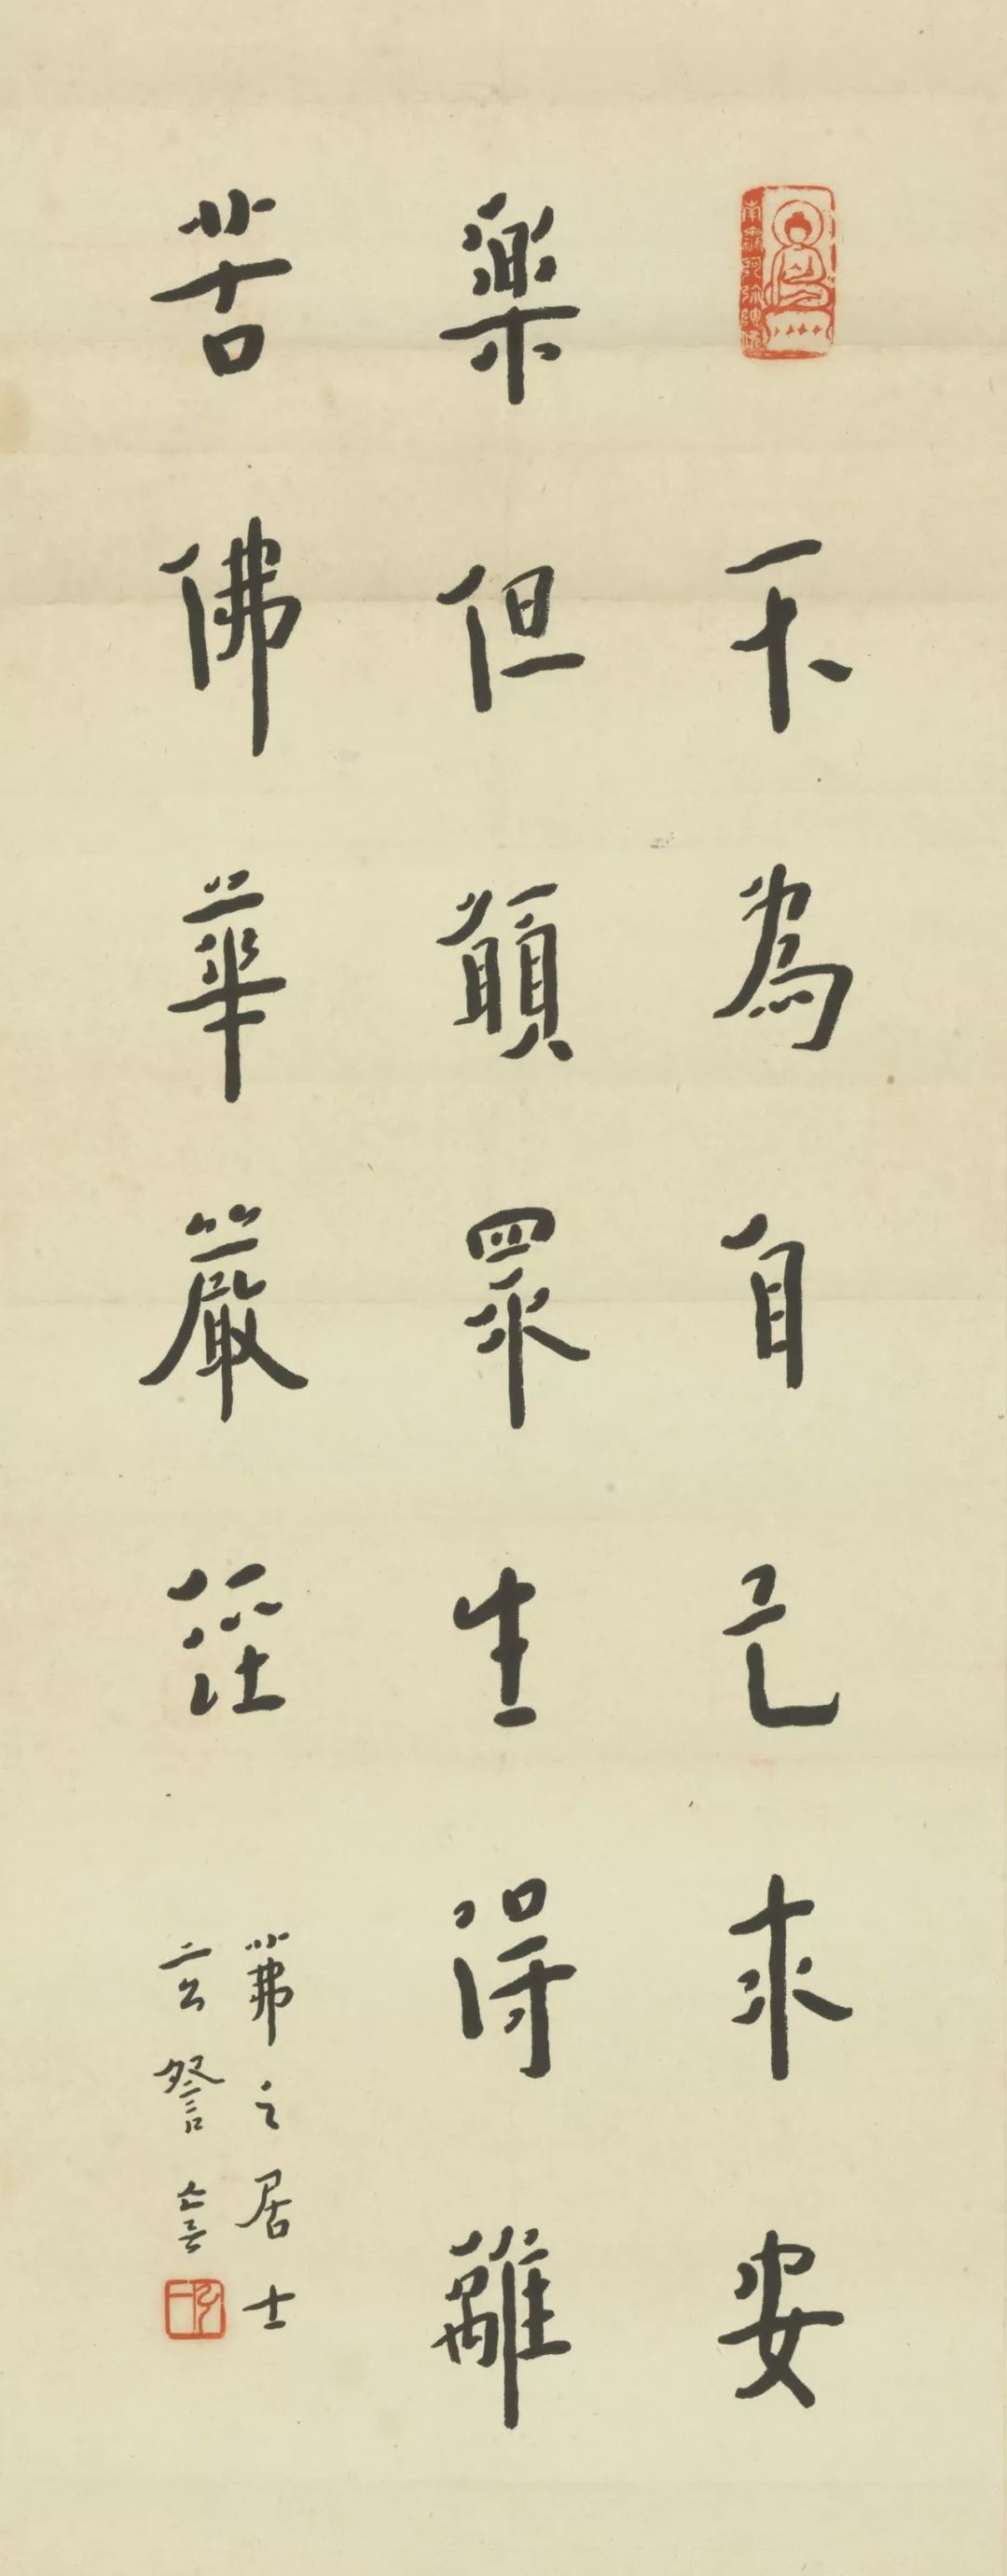 南無阿彌陀佛
不為自己求安
樂但願眾生得離
苦佛華嚴經
茀之居士
玄詧書
弘一